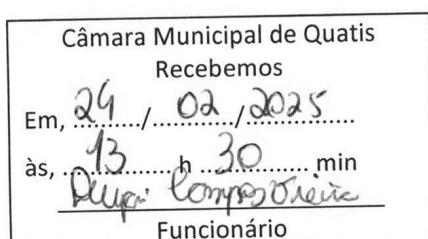 Câmara Municipal de Quatis
Recebemos
Em, 24 / 02 / 2025
às, 13 h 30 min
Funcionário